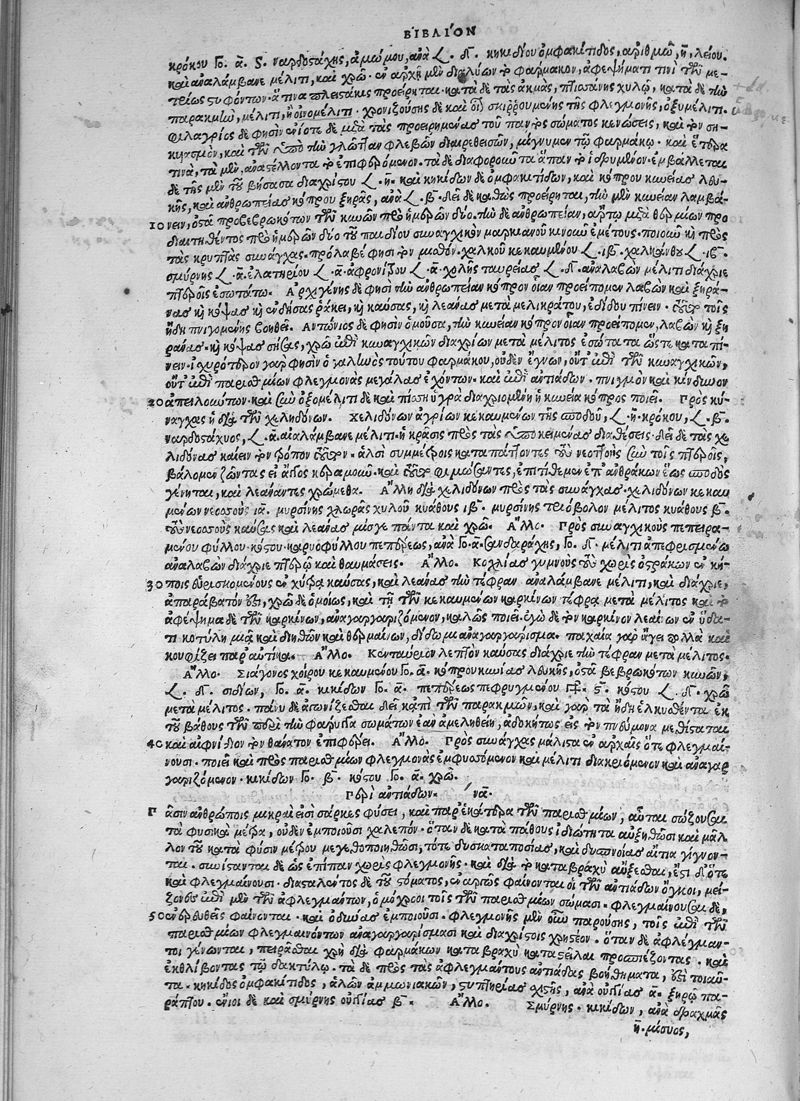 ΒΙΒΛΙΟΝ
κρόκου Γο. α. ϛ. ναρδοστάχης, ἀμώμου, ἀνὰ 𐅻. δ. κηκιδίου ὀμφακίτιδος, ἀριθμῷ, η. λείου.
καὶ ἀναλάμβανε μέλιτι, καὶ χρῶ· ἐν ἀρχῇ μὲν διαλύων τὸ φάρμακον, ἀφεψήματί τινι τῶν με-
τρίως στυφόντων· ἅτινα πλειστάκις προείρηται· κατὰ δὲ τὰς ἀκμὰς, πτισάνης χυλῷ, κατὰ δὲ τὴν
παρακμὴν, μέλιτι, ἢ οἰνομέλιτι· χρονιζούσης δὲ καὶ σκιρρουμένης τῆς φλεγμονῆς, ὀξυμέλιτι.
Φιλάγριος δὲ φησὶν ἐνίοτε δὲ μετὰ τὰς προειρημένας τοῦ παντὸς σώματος κενώσεις, καὶ τὸν ση-
κυασμὸν, καὶ τῶν ὑπὸ τὴν γλῶτταν φλεβῶν διαιρεθεισῶν, μίγνυμεν τῷ φαρμάκῳ· καὶ ἕτερα
τινὰ, τὰ μὲν, ἀναστέλλοντα τὸ ἐπιφερόμενον· τὰ δὲ διαφοροῦντα ἅπαν τὸ ἱδρυμένον· ἐμβάλλεται
δὲ τῆς μὲν τῷ βήσασα διαχρίστου 𐅻. η. καὶ κηκίδων δὲ ὀμφακιτίδων, καὶ κόπρου κυνείας λευ-
κῆς, καὶ ἀνθρωπείας κόπρου ξηρᾶς, ἀνὰ 𐅻. β. δεῖ δὲ καθὼς προείρηται, τὴν μὲν κυνείαν λαμβά-
10 νειν, ὀστᾶ προβεβρωκότων τῶν κυνῶν πρὸ ἡμερῶν δύο· τὴν δὲ ἀνθρωπείαν, ἄρτῳ μετὰ θερμίων προ
διαιτηθέντος πρὸ ἡμερῶν δύο τοῦ παιδίου συναγχικὸν μαρκιανοῦ κοινοῦ ἐμέτους· ποιοῦν καὶ πρὸς
τὰς κρυπτὰς συνάγχας· πρόλαβέ φησι τὸν μισθόν· χαλκοῦ κεκαυμένου 𐅻. ιβ. χαλκάνθου 𐅻. ιβ.
σμύρνης 𐅻. α. ἐλατηρίου 𐅻. α. ἀφρονίτρου 𐅻. α. χολῆς ταυρείας 𐅻. δ. ἀναλαβὼν μέλιτι διάχριε
πτεροῖς ἐσωτάτω. Ἀρχιγένης δέ φησι τὴν ἀνθρωπείαν κόπρον οἵαν προείπομεν λαβὼν καὶ ξηρά-
νας καὶ κόψας καὶ ἐνδήσας ῥάκει, καὶ καύσας, καὶ λεάνας μετὰ μελικράτου, ἐδίδου πίνειν· τοῖς
ἤδη πνιγομένοις βοηθεῖ. Ἀντώνιος δέ φησιν ὁ μούσα, τὴν κυνείαν κόπρον οἵαν προείπομεν, λαβὼν καὶ ξη
ράνας· καὶ κόψας σήσας, χρῶ ἐπὶ κυναγχικῶν διαχρίων μετὰ μέλιτος ἐσώτατα ὥστε καταπί-
νειν· ἰσχυρότερον γάρ φησιν ὁ γαληνὸς τούτου φαρμάκου, οὐδὲν ἔγνων, οὔτ' ἐπὶ τῶν κυναγχικῶν,
οὔτ' ἐπὶ παρισθμίων φλεγμονὰς μεγάλας ἐχόντων· καὶ ἐπὶ ἀντιάδων· πνιγμὸν καὶ κίνδυνον
20 ἀπειλούντων καὶ σὺν ὀξυμέλιτι δὲ καὶ πίσσῃ ὑγρᾷ διαχριομένη ἡ κυνεία κόπρος ποιεῖ. Πρὸς κυ-
νάγχας ἡ διὰ τῶν χελιδόνων. Χελιδόνων ἀγρίων κεκαυμένων τῆς σποδοῦ, 𐅻. η. κρόκου, 𐅻. β.
ναρδοστάχυος, 𐅻. α. ἀναλάμβανε μέλιτι· ἡ κρᾶσις πρὸς τὰς ὑποκειμένας διαθέσεις· δεῖ δὲ τὰς χε
λιδόνας καίειν τὸν τρόπον τοῦτον. ἁλσὶ συμμέτροις καταπάττοντες τοὺς νεοττοὺς σὺν τοῖς πτεροῖς,
βάλομεν ζῶντας εἰς ἄγγος κεραμεοῦν· καὶ τοῦτο φιμώσαντες, ἐπιτίθεμεν ἐπ' ἀνθράκων ἕως σποδὸς
γένηται, καὶ λεάναντες χρώμεθα. Ἄλλη διὰ χελιδόνων πρὸς τὰς συνάγχας· χελιδόνων κεκαυ
μένων νεοσσοὺς ια. μυρσίνης χλωρᾶς χυλοῦ κυάθους ιβ. μυρσίνης τριόβολον μέλιτος κυάθους β.
τοὺς νεοσσοὺς καύσας καὶ λεάνας μίσγε πάντα καὶ χρῶ. Ἄλλο. Πρὸς συναγχικοὺς πεπειρα-
μένον φύλλου κόστου καρυοφύλλου πεπέρεως, ἀνὰ Γο. α. σανδαράχης, Γο. δ. μέλιτι ἀπεφθισμένῳ
ἀναλαβὼν διάχριε πτερῷ καὶ θαυμάσεις. Ἄλλο. Κοχλίας γυμνοὺς τοὺς χωρὶς ὀστράκων ἐν κή-
30 ποις εὑρισκομένους ἐν χύτρᾳ καύσας, καὶ λεάνας τὴν τέφραν ἀναλάμβανε μέλιτι, καὶ διάχριε,
ἀπαράβατόν ἐστι, χρῶ δὲ ὁμοίως, καὶ τῇ τῶν κεκαυμένων καρκίνων τέφρᾳ μετὰ μέλιτος καὶ τὸ
ἀφέψημα δὲ τῶν καρκίνων, ἀναγαργαριζόμενον, καλῶς ποιεῖ· ἐγὼ δὲ τὸν καρκίνον λεαίνων ἐν ὕδα-
τι κοτύλῃ μιᾷ καὶ διηθῶν καὶ θερμαίνων, δίδωμι ἀναγαργάρισμα· παχέα γὰρ ἄγει πολλὰ καὶ
κουφίζει παραυτίκα. Ἄλλο. Κενταύριον λεπτὸν καύσας διάχριε τὴν τέφραν μετὰ μέλιτος.
Ἄλλο. Σιαγόνος χοίρου κεκαυμένου Γο. α. κόπρου κυνείας λευκῆς, ὀστᾶ βεβρωκότων κυνῶν,
𐅻. δ. σιδίων, Γο. α. κικίδων Γο. α. πεπέρεως πεφρυγμένου ϛ. κόστου 𐅻. δ. χρῶ
μετὰ μέλιτος. πάνυ δὲ ἀγωνίζεσθαι δεῖ κἀπὶ τῶν παρακμῶν, καὶ γὰρ τὰ ἤδη ἑλκυσθέντα ἐκ
τοῦ βάθους τῶν περὶ τὴν φάρυγγα σωμάτων ἐὰν ἀμεληθείη, ἀδοκήτως εἰς τὸν πνεύμονα μεθίσταται
40 καὶ αἰφνίδιον τὸν θάνατον ἐπιφέρει. Ἄλλο. Πρὸς συνάγχας μάλιστα ἐν ἀρχαῖς ὅτε φλεγμαί-
νουσι· ποιεῖ καὶ πρὸς παρισθμίων φλεγμονὰς ἐμφυσόμενον καὶ μέλιτι διαχριόμενον καὶ ἀναγαρ
γαριζόμενον· κικίδων Γο. β. κόστου Γο. α. χρῶ.
Περὶ ἀντιάδων. να.
Πᾶσιν ἀνθρώποις μικραὶ εἰσὶ σάρκες φύσει, καὶ παρ' ἑκάτερα τῶν παρισθμίων, αὗται σώζουσαι
τὰ φυσικὰ μέτρα, οὐδὲν ἐμποιοῦσι χαλεπόν· ὅταν δὲ κατὰ πάθους ἰδιότητα αὐξηθῶσι καὶ μᾶλ
λον τοῦ κατὰ φύσιν μέτρου μεγεθοποιηθῶσι, τότε δυσκαταποσίας, καὶ δυσπνοίας αἴτια γίγνον-
ται. συνίστανται δὲ ὡς ἐπίπαν χωρὶς φλεγμονῆς· καὶ διὰ τὸ κατὰ βραχὺ αὔξεσθαι, ἔστι δ' ὅτε
καὶ φλεγμαίνουσι. διασταλέντος δὲ τοῦ στόματος, ἐναργῶς φαίνονται οἱ τῶν ἀντιάδων ὄγκοι, μεί-
ζονες ἐπὶ μὲν τῶν ἀφλεγμάντων, ὁμόχροοι τοῖς τῶν παρισθμίων σώμασι· φλεγμαίνουσαι δὲ,
50 ἐνερευθεῖς φαίνονται· καὶ ὀδύνας ἐμποιοῦσι. φλεγμονῆς μὲν οὖν παρούσης, τοῖς ἐπὶ τῶν
παρισθμίων φλεγμαινόντων ἀναγαργαρίσμασι καὶ διαχρίστοις χρηστέον· ὅταν δὲ ἀφλέγμαν-
τοι γένωνται, πειρᾶσθαι χρὴ διὰ φαρμάκων κατὰ βραχὺ καταστεῖλαι προσπιέζοντας· καὶ
ἐκθλίβοντας τῷ δακτύλῳ. τὰ δὲ πρὸς τὰς ἀφλεγμάντους ἀντιάδας βοηθήματα, ἐστὶ τοιαῦ-
τα· κηκίδος ὀμφακίτιδος, ἁλῶν ἀμμωνιακῶν, στυπτηρίας σχιστῆς, ἀνὰ οὐγγίας α. ξηρῷ πα-
ράπτου. ἔνιοι δὲ καὶ σμύρνης οὐγγίας β. Ἄλλο. Σμύρνης· κικίδων, ἀνὰ δραχμὰς
η. μίσυος,